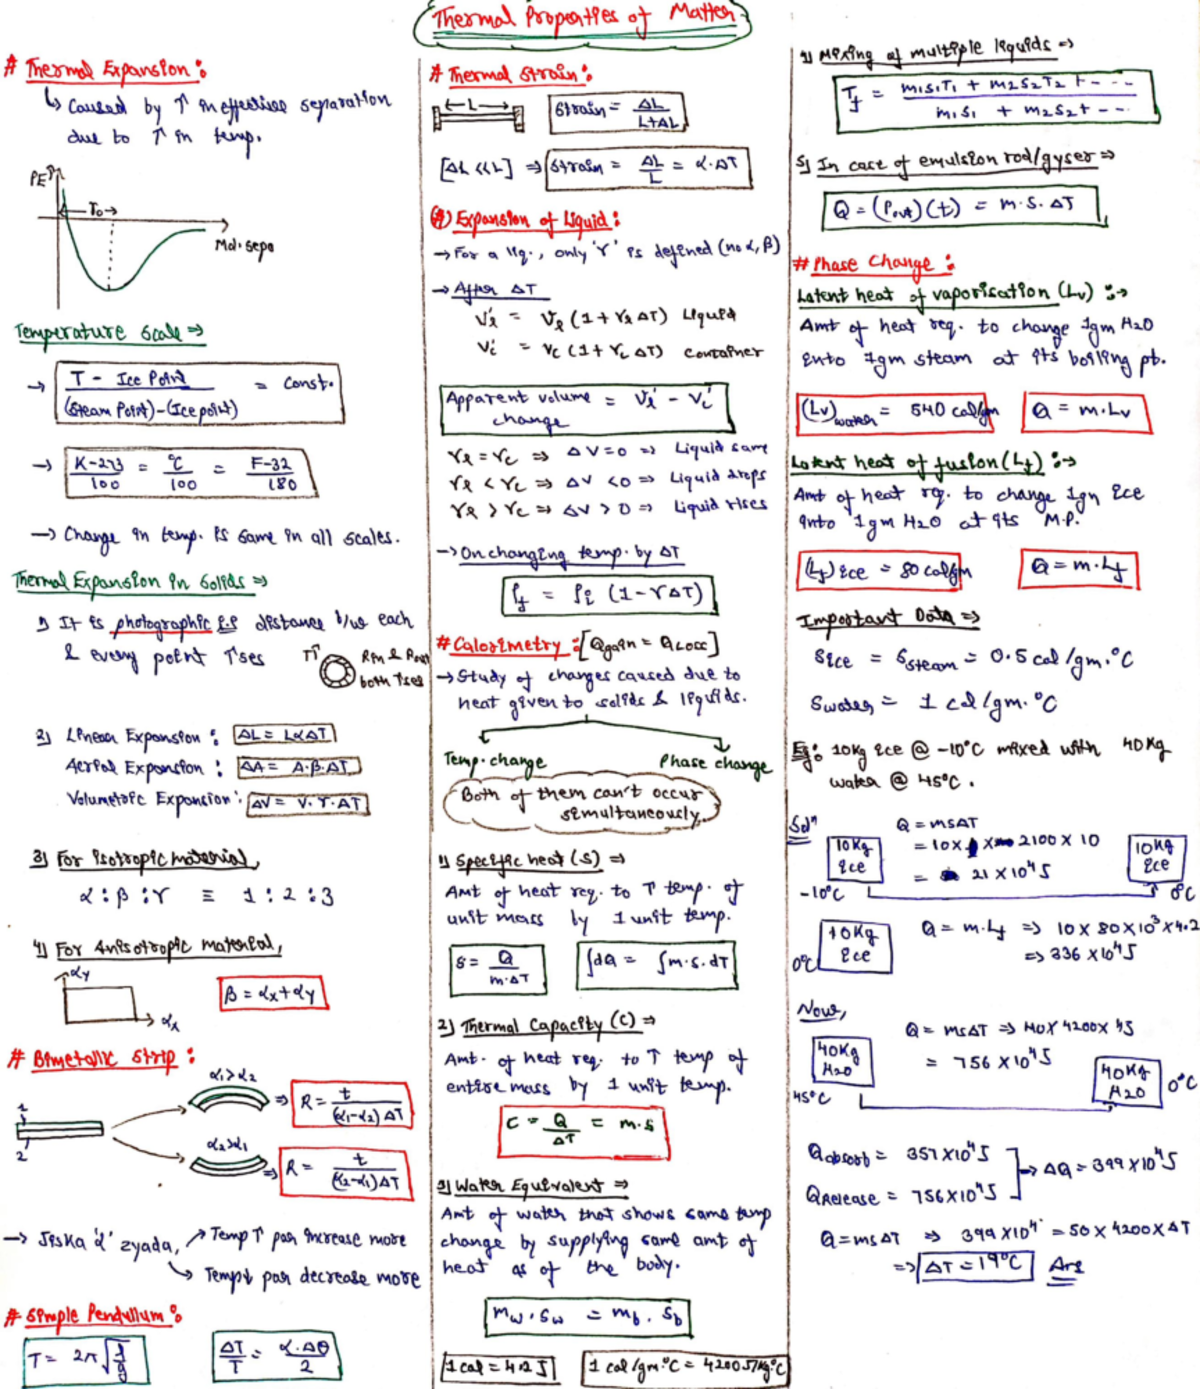 Thermal Properties of Matter
# Thermal Expansion :
↳ Caused by ↑ in effective separation
due to ↑ in temp.
PE↑
T₀→
Mol. sepa
Temperature Scale ⇒
→ T - Ice Point / (Steam Point)-(Ice point) = Const.
→ K-273/100 = °C/100 = F-32/180
→ Change in temp. is same in all scales.
Thermal Expansion in Solids ⇒
1) It is photographic i.e distance b/w each
& every point ↑ses
T↑
Rin & Rout
both ↑ses
2) Linear Expansion : ΔL = LαΔT
Aerial Expansion : ΔA = A.β.ΔT
Volumetric Expansion : ΔV = V.γ.ΔT
3) For isotropic material,
α : β : γ ≡ 1 : 2 : 3
4) For Anisotropic material,
αy
αx
β = αx+αy
# Bimetallic Strip :
1
2
α₁>α₂
⇒ R = t/(α₁-α₂)ΔT
α₂>α₁
⇒ R = t/(α₂-α₁)ΔT
→ Jiska 'α' zyada, ↗ Temp↑ par increase more
↘ Temp↓ par decrease more
# Simple Pendullum :
T = 2π√(l/g)
ΔT/T = α.Δθ/2
# Thermal Strain :
←L→
Strain = ΔL/L+ΔL
[ΔL<<L] ⇒ Strain = ΔL/L = α.ΔT
Expansion of Liquid :
→ For a liq., only 'γ' is defined (no α, β)
→ After ΔT
Vℓ' = Vℓ (1+γℓ ΔT) Liquid
Vc' = Vc (1+γc ΔT) Container
Apparent volume = Vℓ' - Vc'
change
γℓ = γc ⇒ ΔV=0 ⇒ Liquid same
γℓ < γc ⇒ ΔV <0 ⇒ Liquid drops
γℓ > γc ⇒ ΔV > 0 ⇒ Liquid rises
→ On changing temp. by ΔT
ρf = ρi (1-γΔT)
# Calorimetry : [Qgain = QLoss]
→ Study of changes caused due to
heat given to solids & liquids.
Temp. change
Phase change
Both of them can't occur
simultaneously
1) Specific heat (s) ⇒
Amt of heat req. to ↑ temp. of
unit mass by 1 unit temp.
s = Q/m.ΔT
∫dQ = ∫m.s.dT
2) Thermal Capacity (C) ⇒
Amt. of heat req. to ↑ temp of
entire mass by 1 unit temp.
C = Q/ΔT = m.s
3) Water Equivalent ⇒
Amt of water that shows same temp
change by supplying same amt of
heat as of the body.
mw.sw = mb.sb
1 cal = 4.2 J
1 cal/gm.°C = 4200 J/kg°C
Mixing of multiple liquids ⇒
Tf = m₁s₁T₁ + m₂s₂T₂ + - - - / m₁s₁ + m₂s₂ + - - -
5) In case of emulsion rod/gyser ⇒
Q = (Pout)(t) = m.s.ΔT
# Phase Change :
Latent heat of vaporisation (Lv) :→
Amt of heat req. to change 1gm H2O
into 1gm steam at its boiling pt.
(Lv)water = 540 cal/gm
Q = m.Lv
Latent heat of fusion (Lf) :→
Amt of heat rq. to change 1gm ice
into 1gm H2O at its M.P.
(Lf)ice = 80 cal/gm
Q = m.Lf
Important Data ⇒
Sice = Ssteam = 0.5 cal/gm.°C
Swater = 1 cal/gm.°C
Eg: 10Kg ice @ -10°C mixed with 40Kg
water @ 45°C.
Solⁿ
10Kg
ice
-10°C
Q = msΔT
= 10 × 2100 × 10
= 21×10⁴J
10Kg
ice
0°C
10Kg
ice
0°C
Q = m.Lf ⇒ 10×80×10³×4.2
⇒ 336×10⁴J
Now,
40Kg
H2O
45°C
Q = msΔT ⇒ 40×4200×45
= 756×10⁴J
40Kg
H2O
0°C
Qabsorb = 357×10⁴J
QRelease = 756×10⁴J
→ ΔQ = 399×10⁴J
Q=msΔT ⇒ 399×10⁴ = 50×4200×ΔT
⇒ ΔT = 19°C Ans